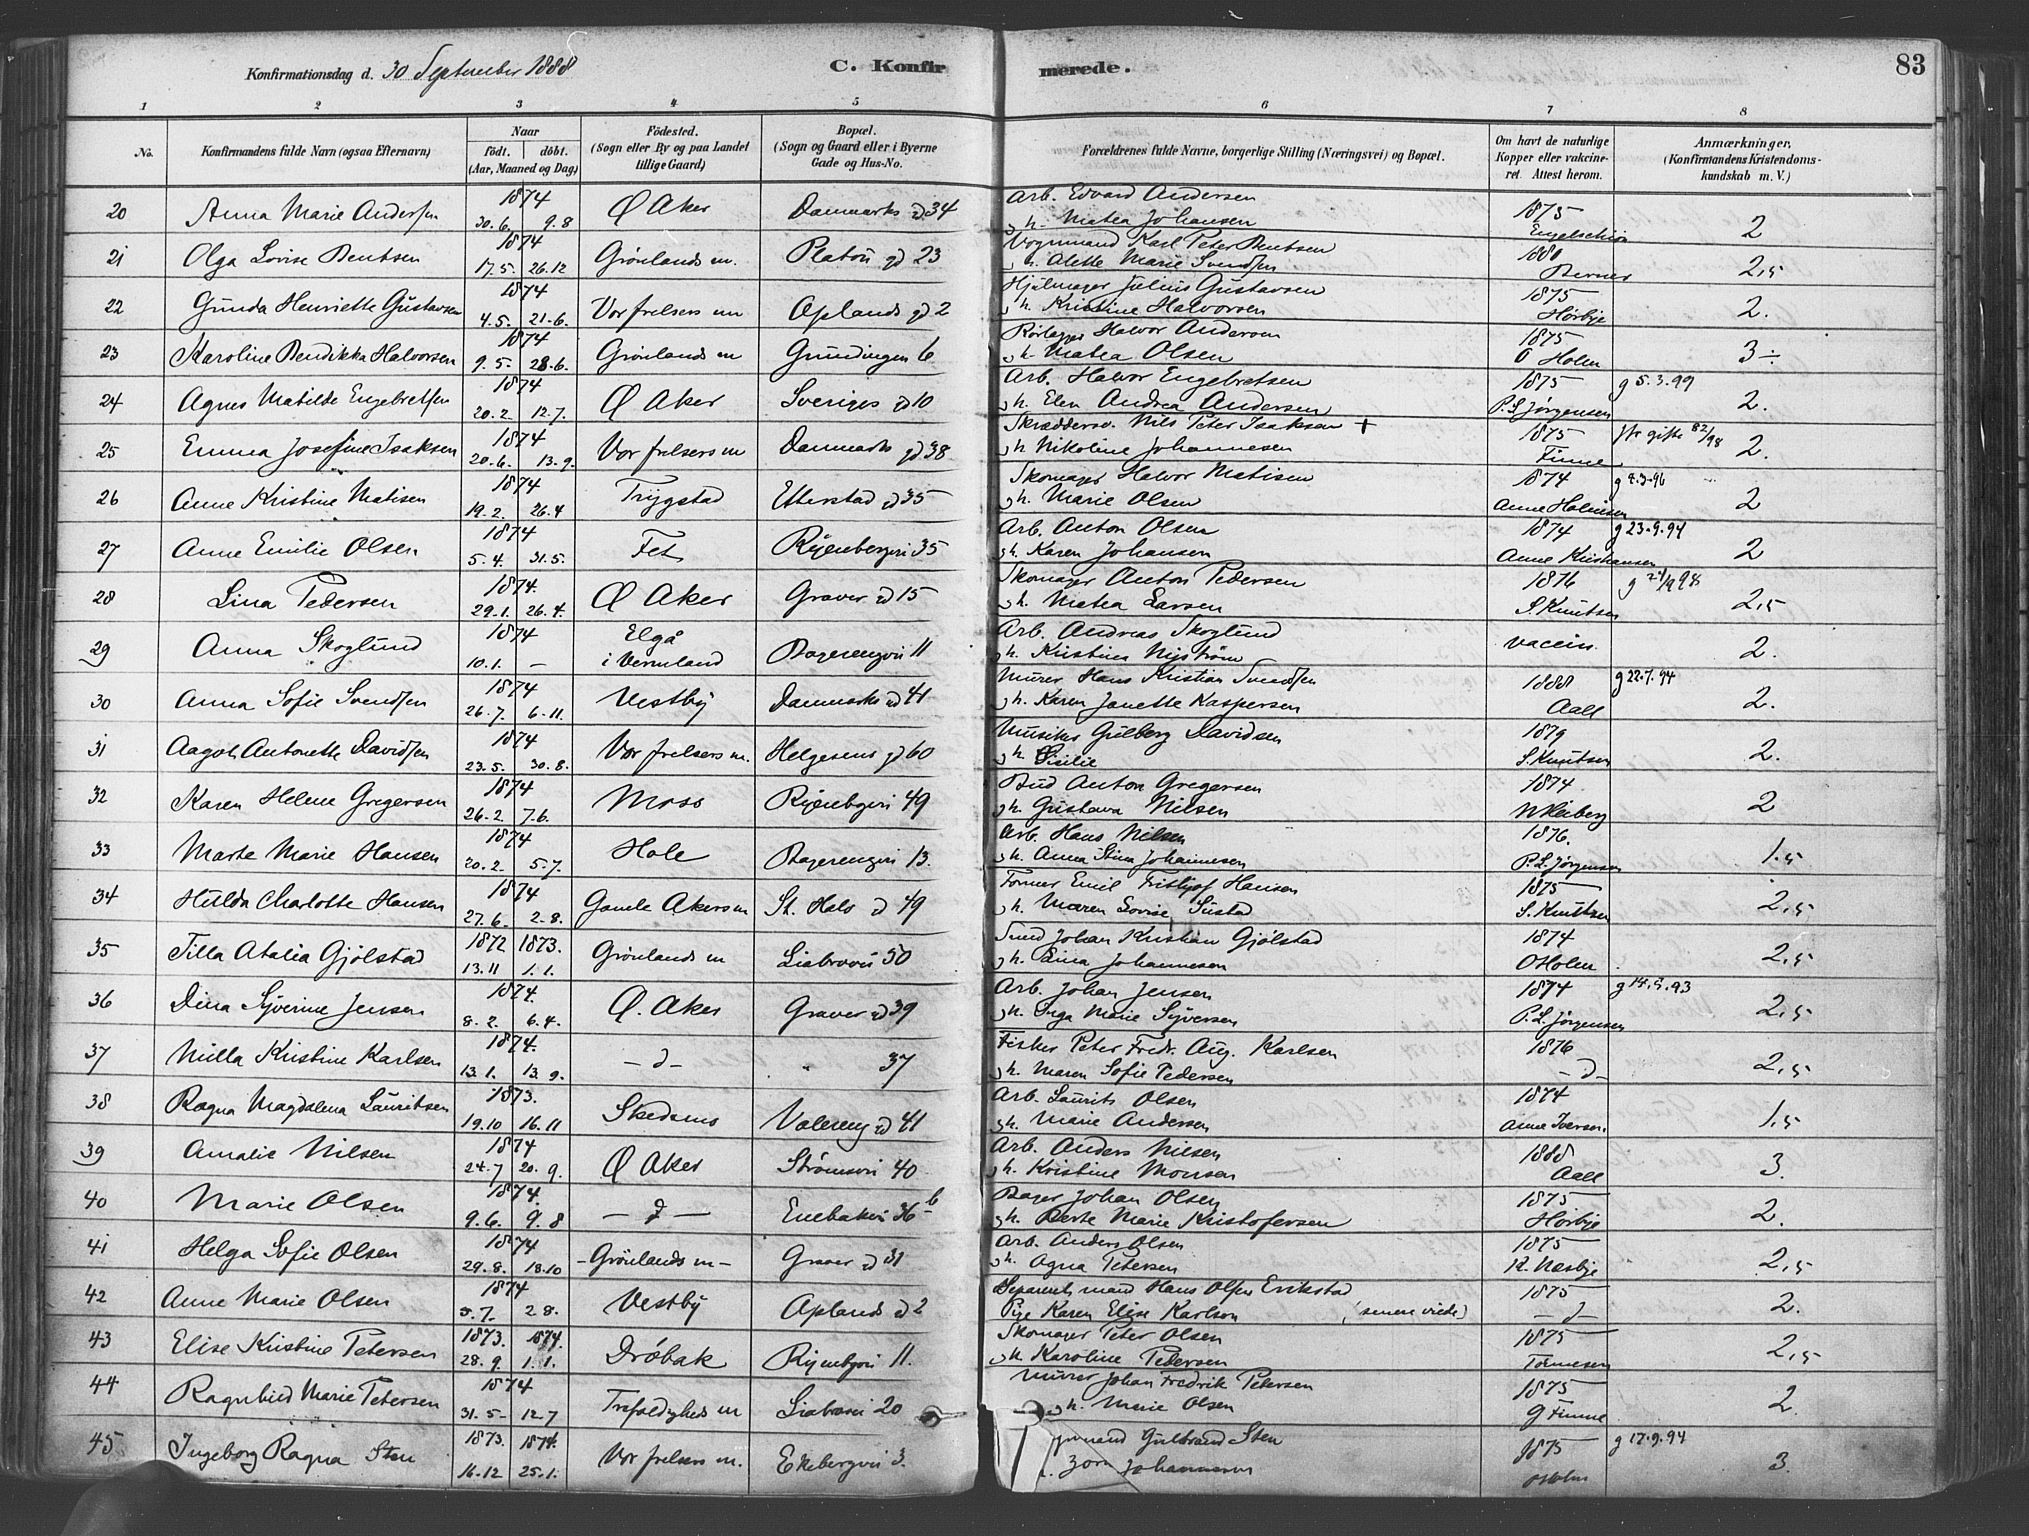 Konfirmationsdag d. 30 September 1888
C. Konfir merede.
83
1 2 3 4 5 6 7 8
No.
Konfirmandens fulde Navn (ogsaa Efternavn)
Naar
født. døbt.
(Aar, Maaned og Dag)
Födested.
(Sogn eller By og paa Landet
tillige Gaard)
Bopæl.
(Sogn og Gaard eller i Byerne
Gade og Hus-No.
Forældrenes fulde Navne, borgerlige Stilling (Næringsvei) og Bopæl.
Om havt de naturlige
Kopper eller vakcine-
ret. Attest herom.
Anmærkninger,
(Konfirmandens Kristendoms-
kundskab m. V.)
20 Anna Marie Andersen 1874 30.6. 9.8 Ø Aker Danmarks gd 34 Arb. Edvard Andersen
h. Matea Johansen 1875 Engelschiøn 2
21 Olga Lovise Bentsen 1874 17.5. 26.12 Grönlands m. Platou gd 23 Vognmand Karl Peter Bentsen
h. Alette Marie Svendsen 1880 Berner 2,5
22 Gunda Henriette Gustavsen 1874 4.5. 21.6. Vor frelsers m Oplands gd 2 Hjulmager Julius Gustavsen
h. Kristine Halvorsen 1875 Hørbye 2.
23 Karoline Bendikka Halvorsen 1874 9.5. 28.6. Grönlands m Grundingen 6 Rørlegger Halvor Andersen
h. Matea Olsen 1875 O Holm 3÷
24 Agnes Matilde Engebretsen 1874 20.2. 12.7. Ø Aker Sveriges gd 10 Arb. Halvor Engebretsen
h. Elen Andrea Andersen 1875 P.L. Jørgensen g 5.3.99 2.
25 Emma Josefine Isaksen 1874 20.6. 13.9. Vor frelsers m Danmarks gd 38 Skræddersv. Nils Peter Isaksen +
h Nikoline Johannesen 1875 Finne gifte 98 2.
26 Anne Kristine Matisen 1874 19.2. 26.4 Trygstad Etterstad gd 35 Skomager Halvor Matisen
h. Marie Olsen 1874 Anne Holmsen g 8.3.96 2
27 Anne Emilie Olsen 1874 5.4. 31.5. Fet Ryenbergvei 35 Arb. Anton Olsen
h. Karen Johansen 1874 Anne Kristiansen g 23.9.94 2
28 Lina Pedersen 1874. 29.1. 26.4. Ø Aker Graver gd 15 Skomager Anton Pedersen
h. Matea Larsen 1876 S. Knutsen 2,5
29 Anna Skoglund 1874 10.1. – Elgå
i Vermland Bagerengvei 11 Arb. Andreas Skoglund
h. Kristina Nyström vaccin. 2.
30 Anna Sofie Svendsen 1874 26.7. 6.11. Vestby Danmarks gd 41 Murer Hans Kristian Svendsen
h. Karen Janette Kaspersen 1888 Aall g 22.7.94 2.
31 Aagot Antonette Davidsen 1874 23.5. 30.8. Vor frelsers m. Helgesens gd 60 Musiker Gulberg Davidsen
h. Sisilie 1879 S. Knutsen 2.
32 Karen Helene Gregersen 1874 26.2. 7.6. Moss Ryenbgvei 49 Bud Anton Gregersen
h. Gustava Nilsen 1874 2
33 Marte Marie Hansen 1874 20.2. 5.7. Hole Bagerengvei 13. Arb. Hans Nilsen
h. Anna Stina Johannesen 1876. P.L. Jørgensen 1.5
34 Hulda Charlotte Hansen 1874 27.6. 2.8. Gamle Akers m St. Hals gd 49 Former Emil Fritjof Hansen
h. Maren Lovise Sustad 1875 S. Knutsen 2,5
35 Tilla Atalia Gjölstad 1872 1873. 13.11 1.1. Grönlands m Liabrovei 50 Smed Johan Kristian Gjölstad
h. Lina Johannesen 1874 O Holm 2,5
36 Dina Syverine Jensen 1874. 8.2. 6.4. Ø. Aker Graver gd 39 Arb. Johan Jensen
h. Inga Marie Syversen 1874 P.L. Jørgensen g 14.5.93 2,5
37 Milla Kristine Karlsen 1874. 13.1. 13.9. –d– " 37 Fisker Peter Fredr. Aug. Karlsen
h. Maren Sofie Pedersen 1876 –d– 2,5
38 Ragna Magdalena Lauritsen 1873. 19.10 16.11 Skedsmo Valereng gd 41 Arb. Laurits Olsen
h. Marie Andersen 1874 Anne Iversen. 1,5
39 Amalie Nilsen 1874 24.7 20.9. Ø Aker Strömsvei 40 Arb. Anders Nilsen
h. Kristine Monsen 1888 Aall 3.
40 Marie Olsen 1874. 9.6. 9.8 –d– Enebakvei 36 b Bager Johan Olsen
h. Berte Marie Kristofersen 1875 Hørbye 2.
41 Helga Sofie Olsen 1874 29.8. 18.10 –Grönlands m– Graver gd 31 Arb. Anders Olsen
h. Agna Petersen 1875 K. Næsbye 2,5
42 Anne Marie Olsen 1874 5.7. 2.8. Vestby Oplands gd 2 Separert mand Hans Olsen Erikstad
Pige Karen Elise Karlson (senere viede) 1875 –d– 2.
43 Elise Kristine Petersen 1873. 1874. 28.9. 1.1. Dröbak Ryenbgvei 11. Skomager Peter Olsen
h. Karoline Pedersen 1875 2,5
44 Ragnhild Marie Petersen 1874 31.5 12.7 Trefoldigheds m Liabrovei 20 Murer Johan Fredrik Petersen
h. Marie Olsen 1875 G Finne 2
45 Ingeborg Ragna Sten 1873. 1874. 16.12 25.1. Vor frelsers m. Ekebergvei 3. mand Gulbrand Sten
Johannesen 1875 O Holm g 17.9.94 3.